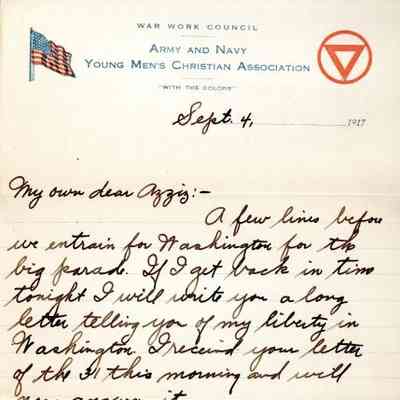 WAR WORK COUNCIL
ARMY AND NAVY
YOUNG MEN'S CHRISTIAN ASSOCIATION
"WITH THE COLORS"
Sept. 4, 1917
My own dear Azziz:-
A few lines before
we entrain for Washington for the
big parade. If I get back in time
tonight I will write you a long
letter telling you of my liberty in
Washington. I receivd your letter
of the 31 this morning and will
answer it